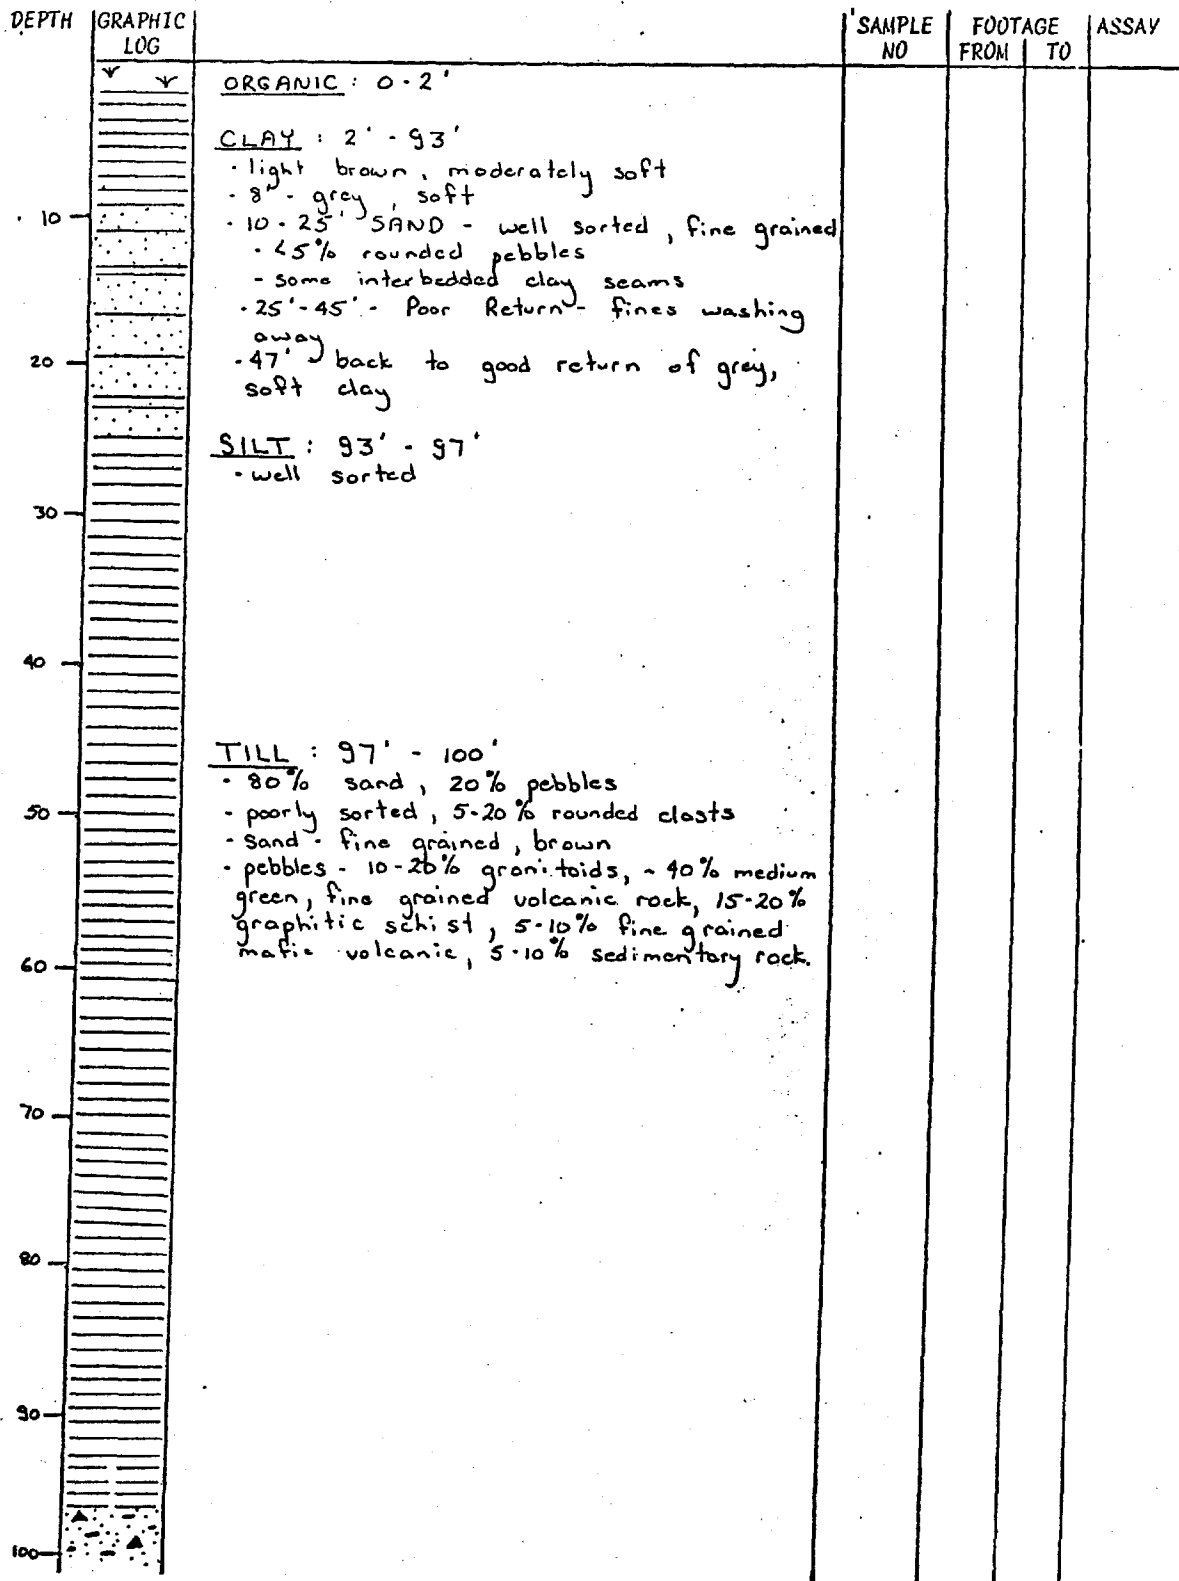 DEPTH GRAPHIC LOG SAMPLE NO FOOTAGE FROM TO ASSAY
ORGANIC : 0 - 2'
CLAY : 2' - 93'
- light brown, moderately soft
- 8" - grey, soft
10 - 10 - 25' SAND - well sorted, fine grained
- <5% rounded pebbles
- some interbedded clay seams
- 25' - 45' - Poor Return - fines washing
away
20 - 47' back to good return of grey,
soft clay
SILT : 93' - 97'
- well sorted
30
40
TILL : 97' - 100'
- 80% sand, 20% pebbles
50 - poorly sorted, 5-20% rounded clasts
- sand - fine grained, brown
- pebbles - 10-20% granitoids, ~ 40% medium
green, fine grained volcanic rock, 15-20%
graphitic schist, 5-10% fine grained
60 mafic volcanic, 5-10% sedimentary rock.
70
80
90
100